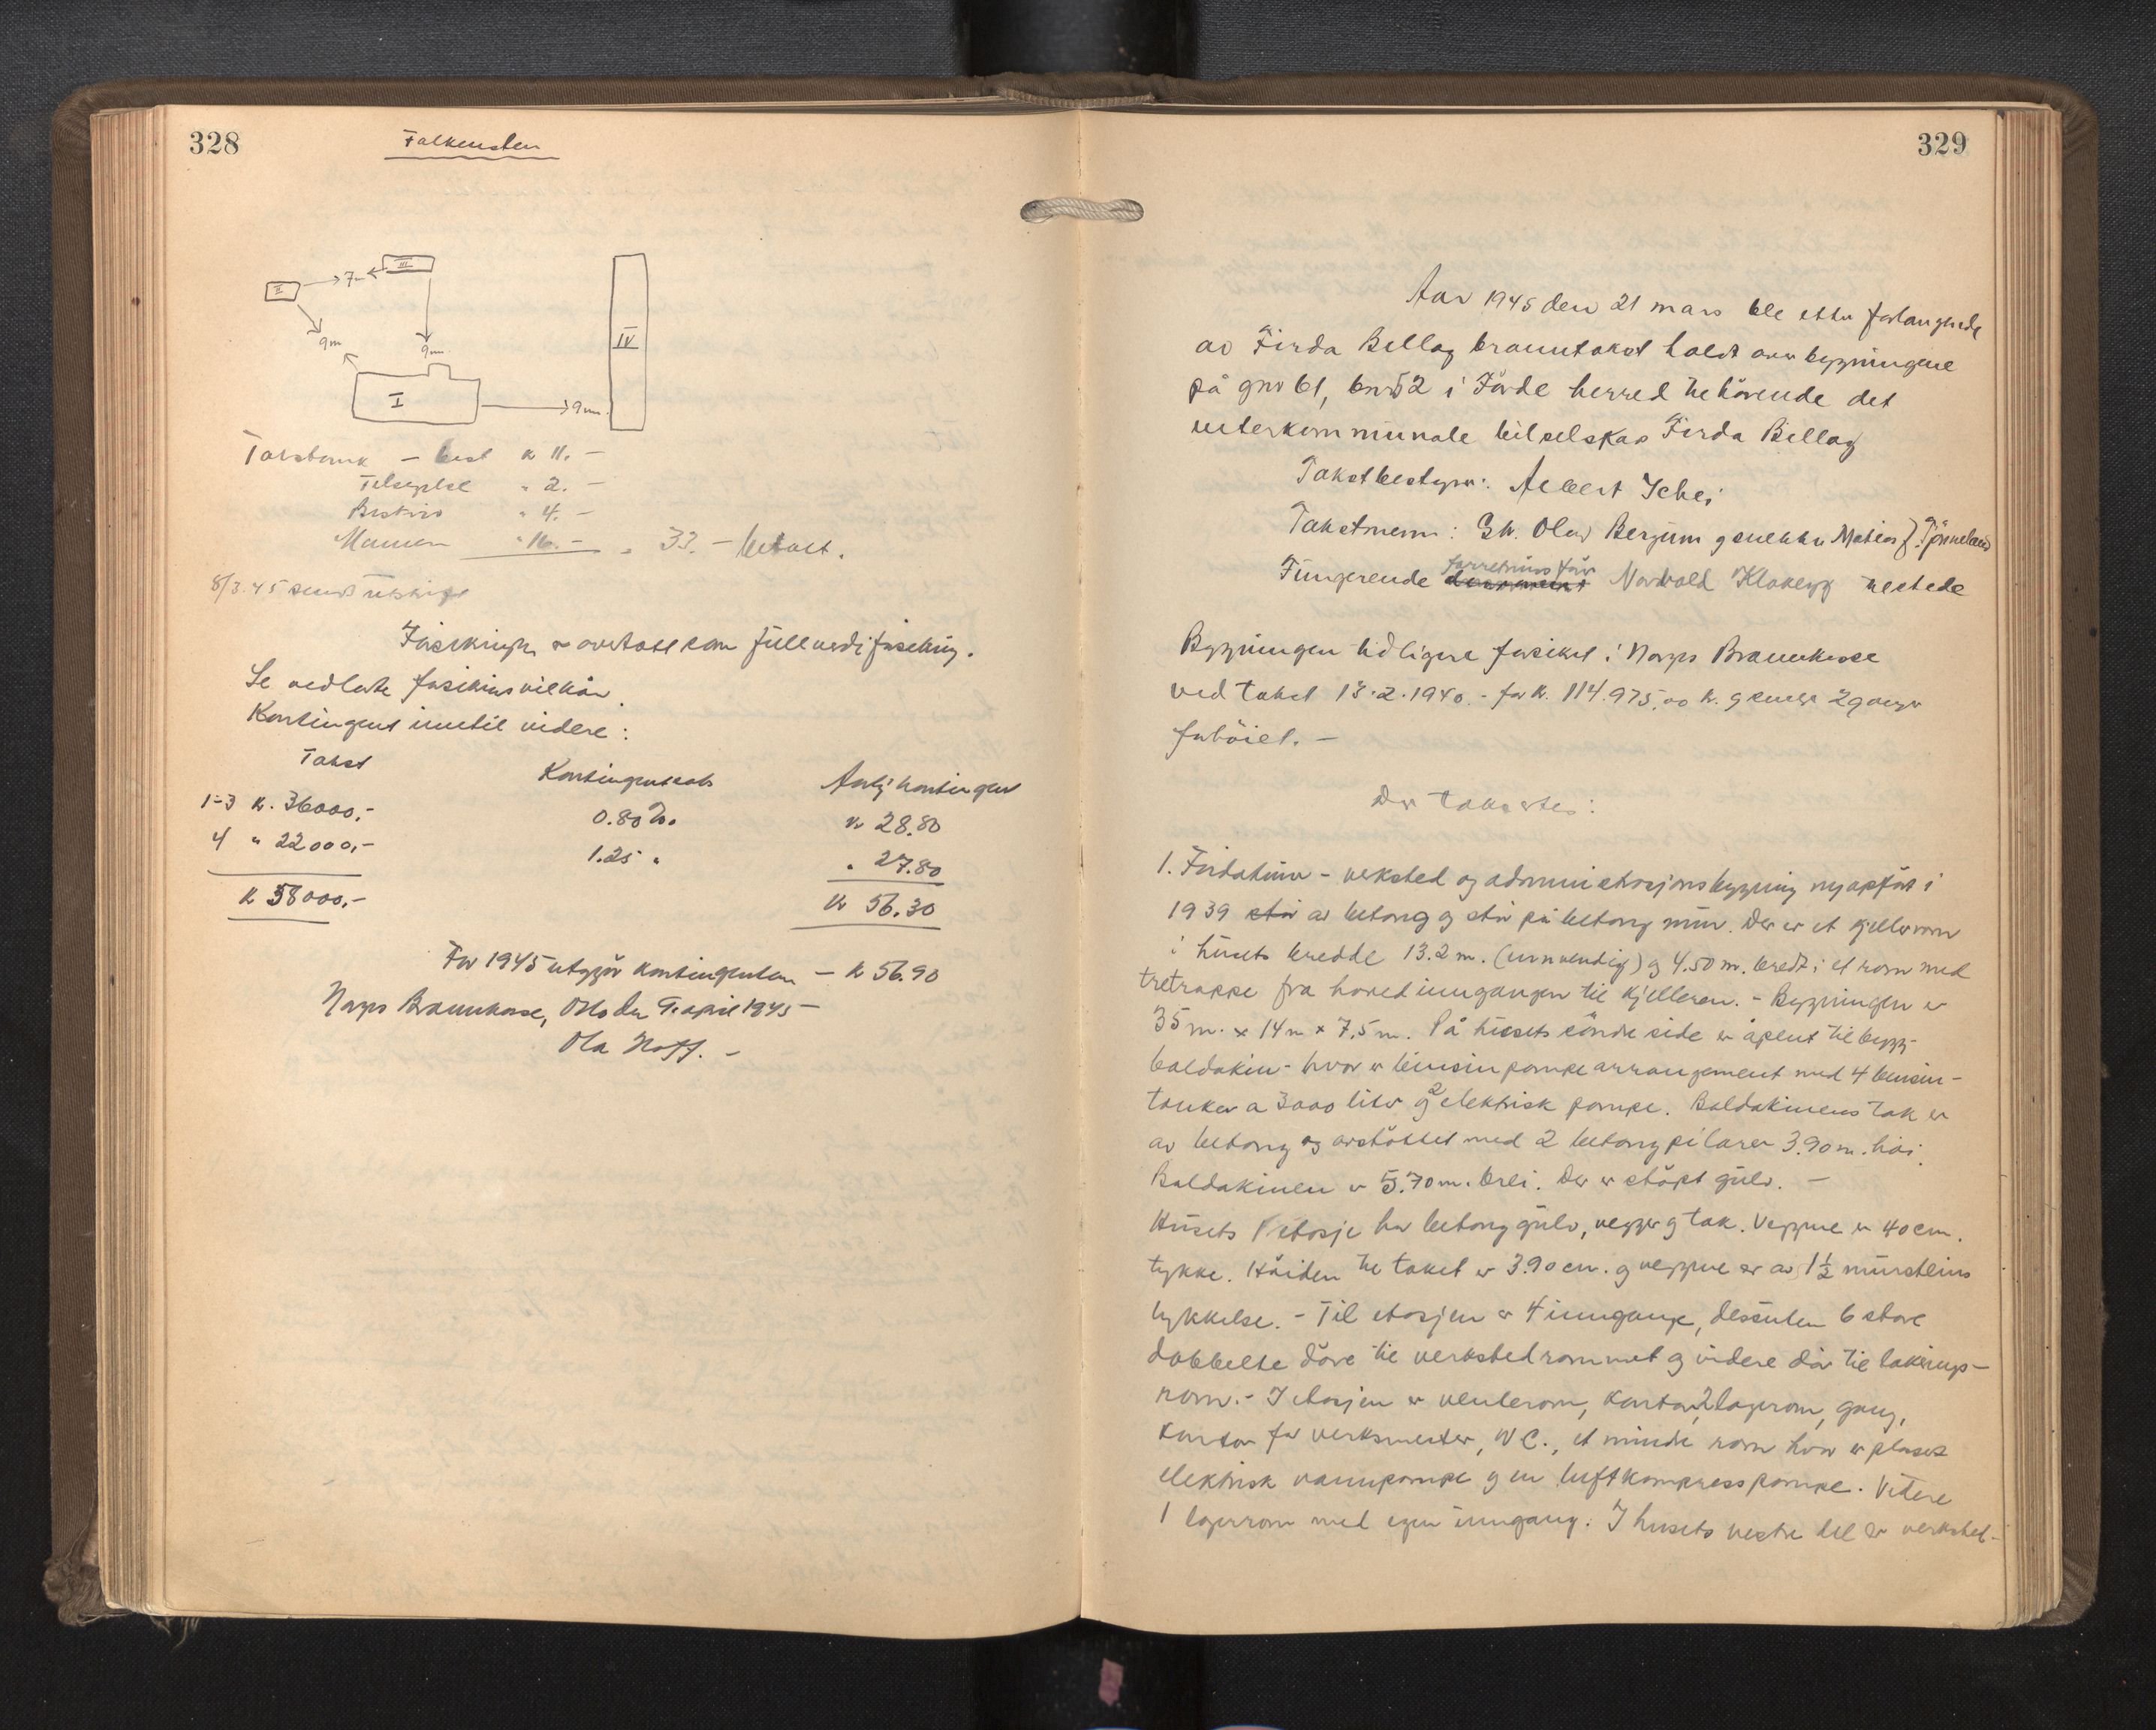 328
Falkensten
II
7m
III
IV
9m
9m
I
9m
Takstbank – best kr 11. –
Tilsigelse " 2. –
" 4. –
" 16. – " 33. – betalt.
8/3.45 sendt utskrift
Forsikringen er overtatt som fullverdiforsikring.
Se vedlagte forsikringsvilkår.
Kontingent inntil videre:
Takst
Kontingentsats
Årlig kontingent
1-3 kr. 36000,-
0.80 ‰
kr 28.80
4 " 22000,-
1.25 "
" 27.80
kr 58000,-
kr 56.30
For 1945 utgjør kontingenten – kr 56.90
Norges Brannkasse, Oslo den 9. april 1945 –
Ola Hoff. –
329
Aar 1945 den 21 mars ble etter forlangende
av Firda Billag branntakst holdt over bygningene
på gnr 61, bnr 52 i Förde herred tilhörende det
interkommunale bilselskap Firda Billag
Takstbestyrer: Albert Schei
Takstmenn: Olav Bergum og snekker Matias J. Tjönneland
Fungerende forretningsförer Nordvald Klakegg möttede
Bygningen tidligere forsikret i Norges Brannkasse
ved takst 13.2.1940. – for kr. 114.975,00 kr. og senere 2 ganger
forhöiet. –
Der takseres:
1. Firdatun – verksted og administrasjonsbygning nyopfört i
1939 står av betong og står på betong mur. Der er et kjellerrom
i husets bredde 13.2 m. (innvendig) og 4.50 m. bredt i et rom med
tretrappe fra hovedinngangen til kjelleren. – Bygningen er
35 m. x 14 m x 7,5 m. På husets söndre side er åpent tilbygg-
baldakin – hvor er bensinpumpearrangement med 4 bensin-
tanker a 3000 liter og 2 elektrisk pumpe. Baldakinens tak er
av betong og avstöttet med 2 betongpilarer 3.90 m. höi.
Baldakinen er 5.70 m. brei. Der er stöpt gulv. –
Husets 1 etasje har betonggulv, vegger og tak. Veggene er 40 cm.
tykke. Höiden til taket er 3.90 cm. og veggene er av 1½ mursteins
tykkelse. – Til etasjen er 4 innganger, dessuten 6 store
dobbelte döre til verkstedrommet og videre dör til lakerings-
rom. – I etasjen er venterom, kontor, 2 lagerrom, gang,
kontor for verksmester, WC., et mindre rom hvor er plasert
elektrisk vannpumpe og en luftkompresspumpe. Videre
1 lagerrom med egen inngang. I husets vestre del er verksted-